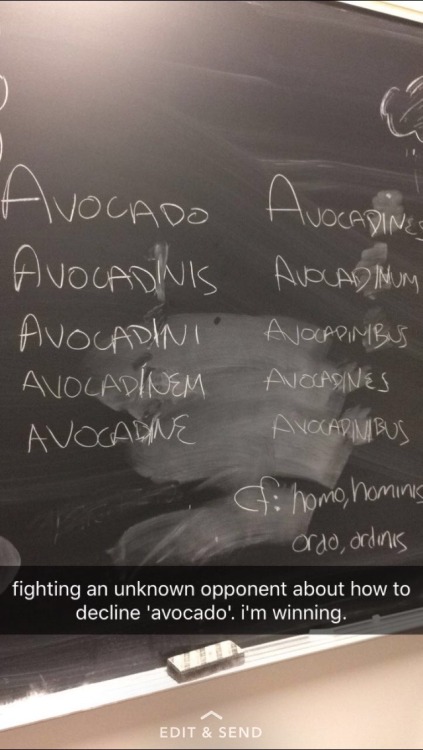 AVOCADO
AVOCADINIS
AVOCADINI
AVOCADINEM
AVOCADINE
AVOCADINES
AVOCADINUM
AVOCADINIBUS
AVOCADINES
AVOCADINIBUS
cf: homo, hominis
ordo, ordinis
fighting an unknown opponent about how to
decline 'avocado'. i'm winning.
EDIT & SEND